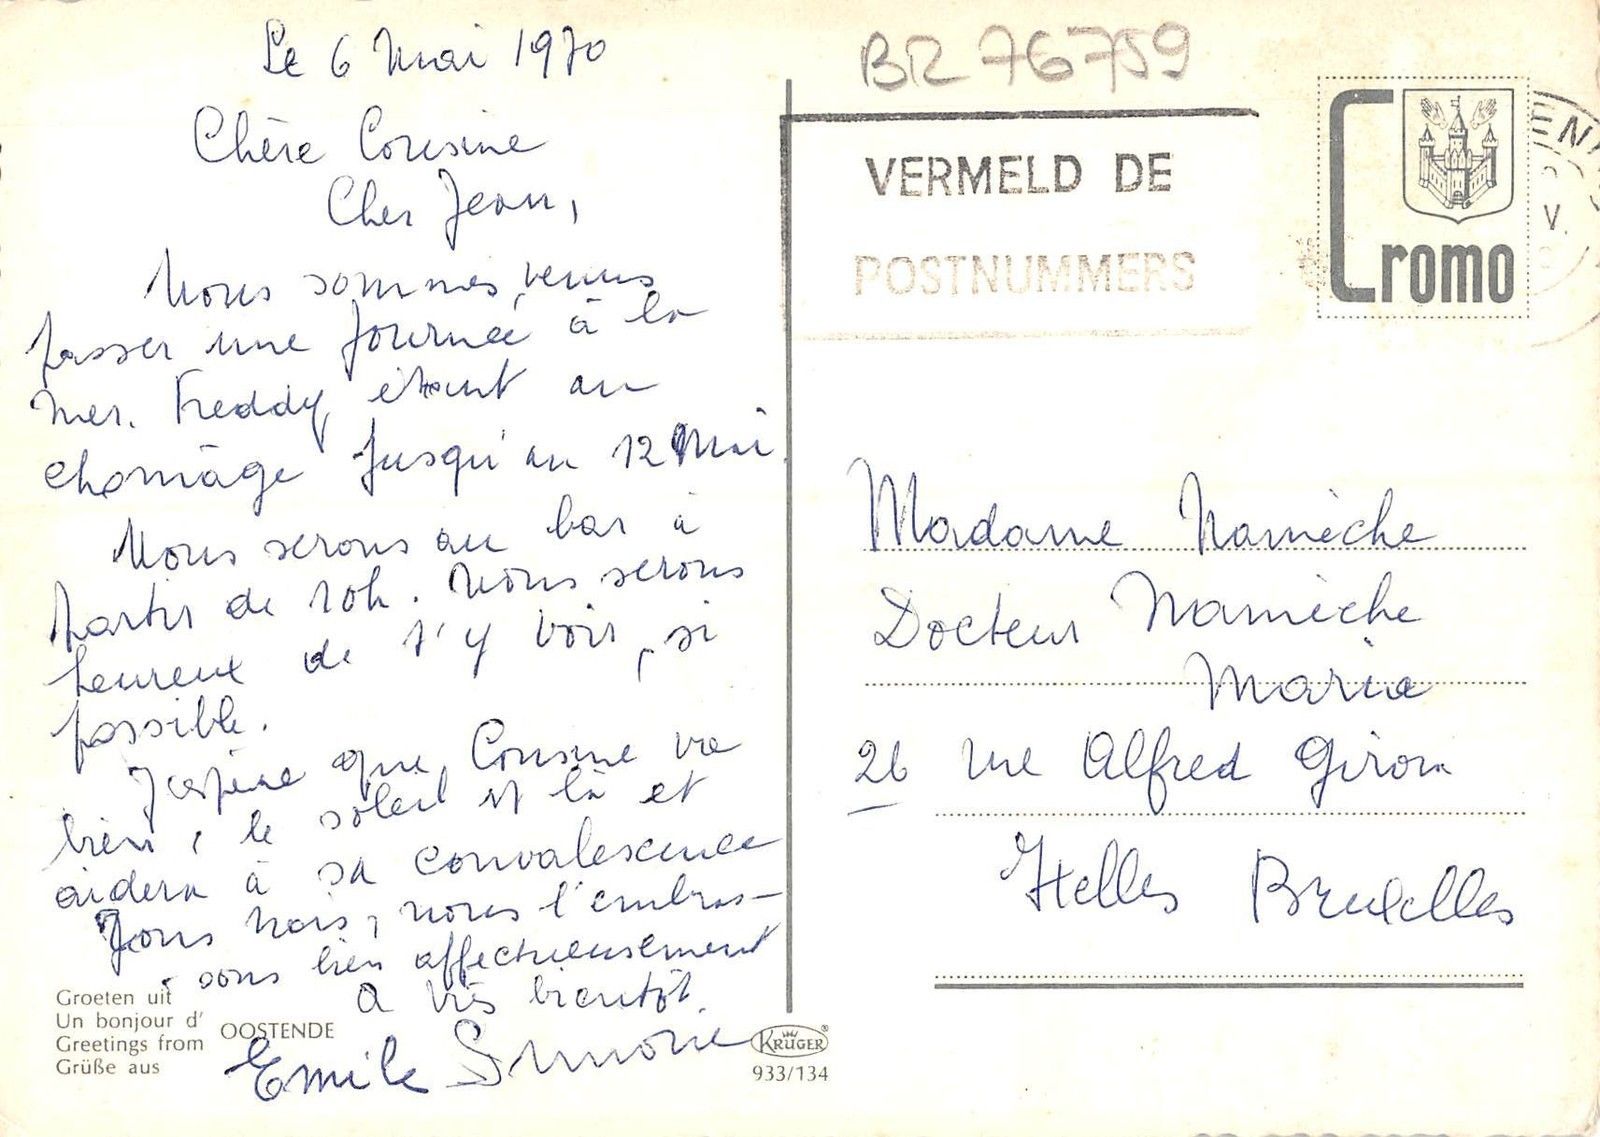 Le 6 Mai 1970
Chère Cousine
Cher Jean,
Nous sommes venus
passer une journée à la
mer. Freddy étant au
chomâge jusqu'au 12 Mai.
Nous serons au bar à
partir de 10h. Nous serons
heureux de t'y voir, si
possible.
J'espère que Cousine va
bien, le soleil est là et
aidera à sa convalescence
Tous trois, nous t'embras-
sons bien affectueusement
A très bientôt.
Emile Simone
Groeten uit
Un bonjour d'
Greetings from
Grüße aus
OOSTENDE
KRÜGER
933/134
BR 76759
VERMELD DE
POSTNUMMERS
Cromo
V.
Madame Namèche
Docteur Namèche
Maria
26 rue Alfred Giron
Ixelles Bruxelles